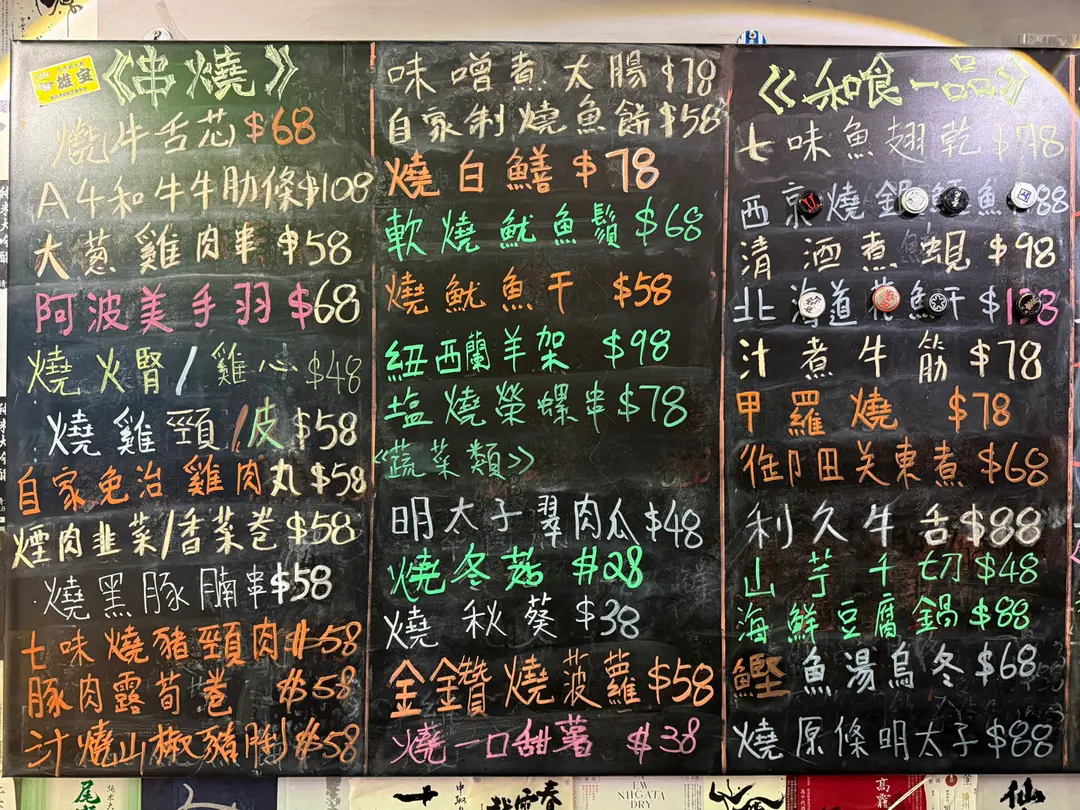 《串燒》
燒牛舌芯$68
A牛和牛牛肋條$108
大葱雞肉串$58
阿波美手羽$68
燒火腎/雞心$48
燒雞頸/皮$58
自家免治雞肉丸$58
煙肉韭菜/香菜卷$58
燒黑豚腩串$58
七味燒豬頸肉$58
豚肉露荀卷 $58
汁燒山椒豬$58
味噌煮大腸$78
自家制燒魚餅$58
燒白鱔$78
軟燒魷魚鬚$68
燒魷魚干 $58
紐西蘭羊架 $98
塩燒榮螺串$78
《蔬菜類》
明太子翠肉瓜$48
燒冬菇 $28
燒秋葵$38
金鑽燒菠蘿$58
燒一口甜薯 $38
《和喰一品》
七味魚翅乾$78
西京燒銀魚$88
清酒煮蜆$98
北海道花魚干$1
汁煮牛筋$78
甲羅燒 $78
御田关東煮$68
利久牛舌$88
山芋千切$48
海鮮豆腐鍋$88
鰹魚湯烏冬$68
燒原條明太子$88